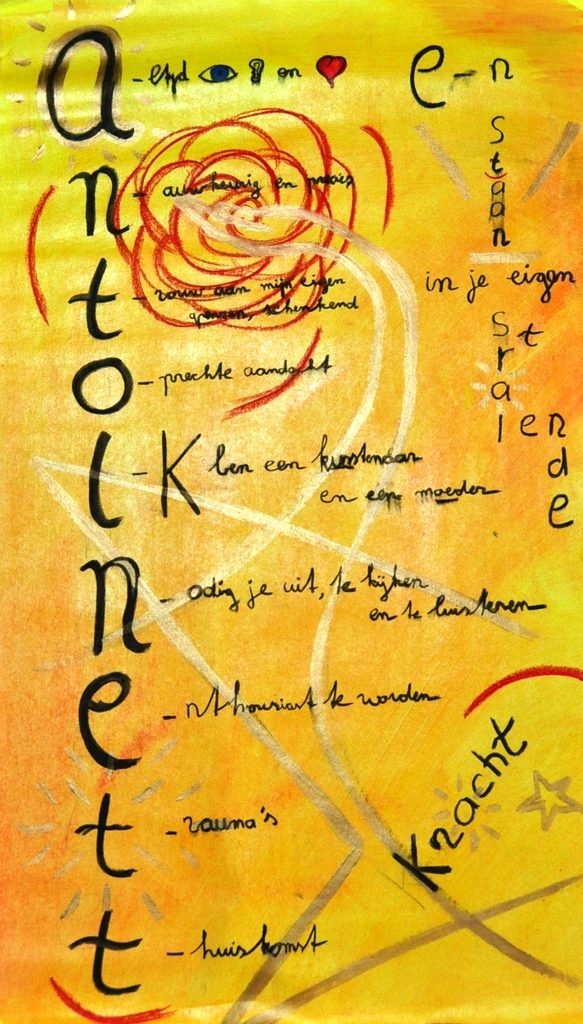 a-ltijd en
n-auwkeurig en precies
t-rouw aan mijn eigen
grenzen, schenkend
o-prechte aandacht
I-K ben een kunstenaar
en een moeder
n-odig je uit, te kijken
en te luisteren
e-nthousiast te worden
t-rauma's
t-huiskomst
e-n
staan
in je eigen
stralende
Kracht